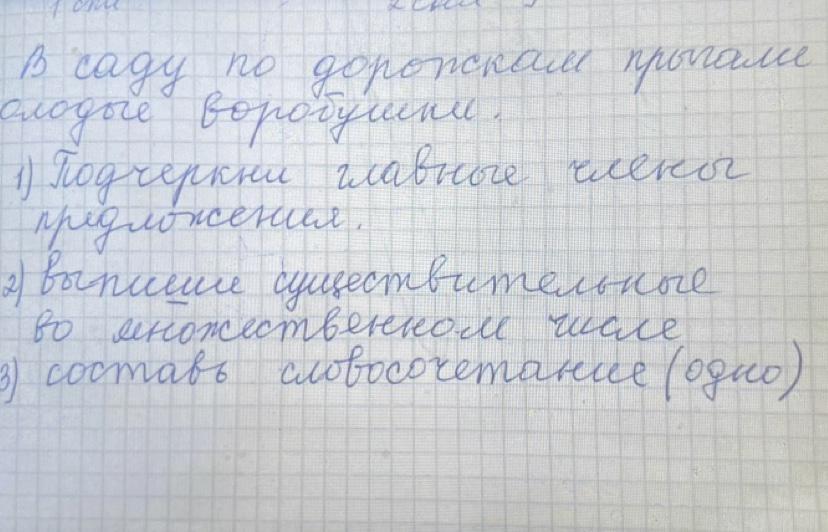 В саду по дорожкам прыгали
олодые воробушки.
1) Подчеркни главные члены
предложения.
2) Выпиши существительные
во множественном числе
3) составь словосочетание (одно)